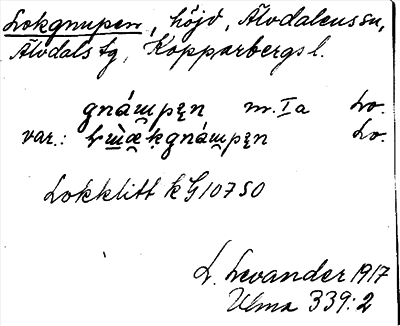 Lokgnupen, höjd, Älvdalens sn,
Älvdals tg, Kopparbergs l.
gnáɯpęn m. Ia Lo.
var.: Lo.
Lokklitt k G10750
L. Levander 1917
Ulma 339:2